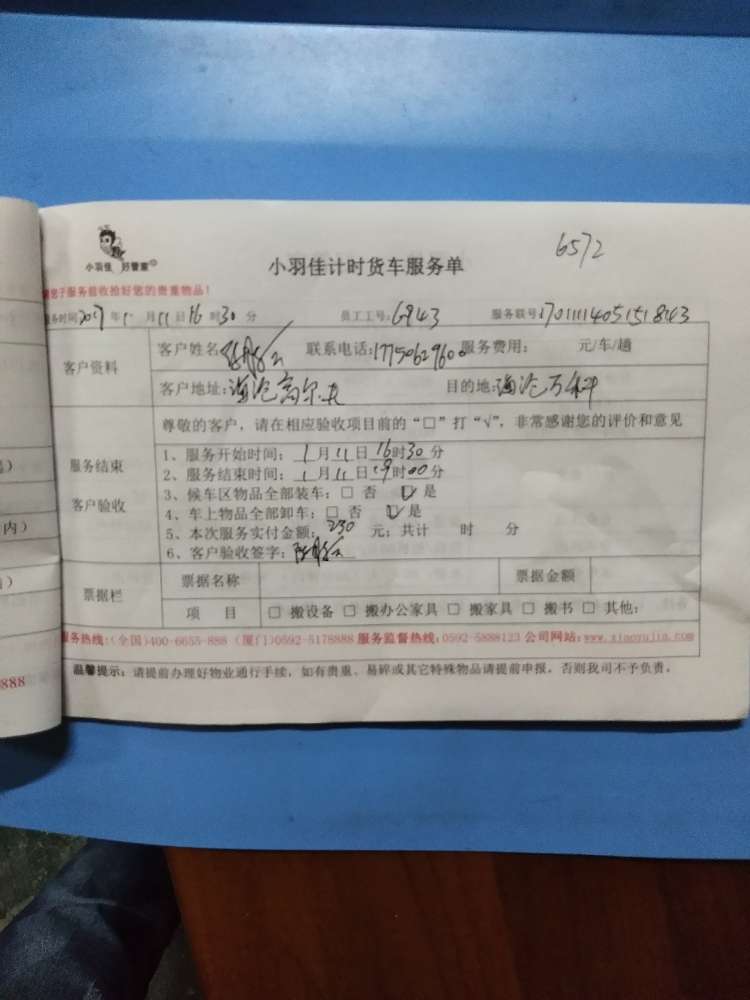 6572
小羽佳 好管家
小羽佳计时货车服务单
子服务前收拾好您的贵重物品！
服务时间2017年1月11日16时30分 员工工号:6943 服务联号:1701111405151843
客户资料
客户姓名: 联系电话:17750629600 服务费用: 元/车/趟
客户地址:海沧高尔夫 目的地:海沧万科
服务结束
客户验收
尊敬的客户，请在相应验收项目前的“□”打“√”，非常感谢您的评价和意见
1、服务开始时间：1月11日16时30分
2、服务结束时间：1月11日19时00分
3、候车区物品全部装车：□ 否 ☑ 是
4、车上物品全部卸车：□ 否 ☑ 是
5、本次服务实付金额：230 元；共计 时 分
6、客户验收签字：
票据栏
票据名称 票据金额
项 目 □ 搬设备 □ 搬办公家具 □ 搬家具 □ 搬书 □ 其他:
服务热线:(全国)400-6655-888 (厦门)0592-5178888 服务监督热线:0592-5888123 公司网站:www.xiaoyujia.com
温馨提示：请提前办理好物业通行手续，如有贵重、易碎或其它特殊物品请提前申报，否则我司不予负责。
）
内）
）
888